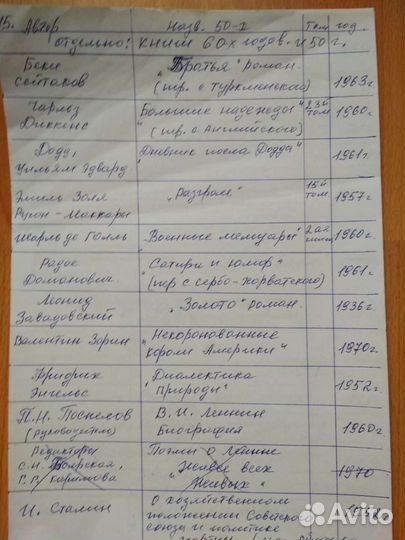 15. Автор Назв. 50-х Том год.
отдельно: книги 60-х годов. и 50 г.
Беки "Братья" роман.
Сейтаков (пер. с Туркменского) 1963г.
Чарльз "Большие надежды" 23й 1960г.
Диккенс (пр. с Английского) том
Додд, "Дневник посла Додда" 1961г.
Уильям Эдвард.
Эмиль Золя "Разгром" 15й 1957г.
Ругон-Маккары том
Шарль де Голль "Военные мемуары" 2ая 1960г.
книга
Радое "Сатира и юмор" 1961г.
Доманович. (пер с Сербо-Хорватского)
Леонид "Золото" роман. 1936г.
Завадовский
Валентин Зорин "Некоронованные 1970г.
короли Америки"
Фридрих "Диалектика 1952г.
Энгельс природы"
П.Н. Поспелов В.И. Ленин 1960г.
(руководитель) Биография
Редакторы Поэмы о Ленине
С.И. Боярская, "Живее всех 1970
Г.Р. Каримова Живых"
И. Сталин О хозяйственном
положении Советского
союза и политике
партии
Avito